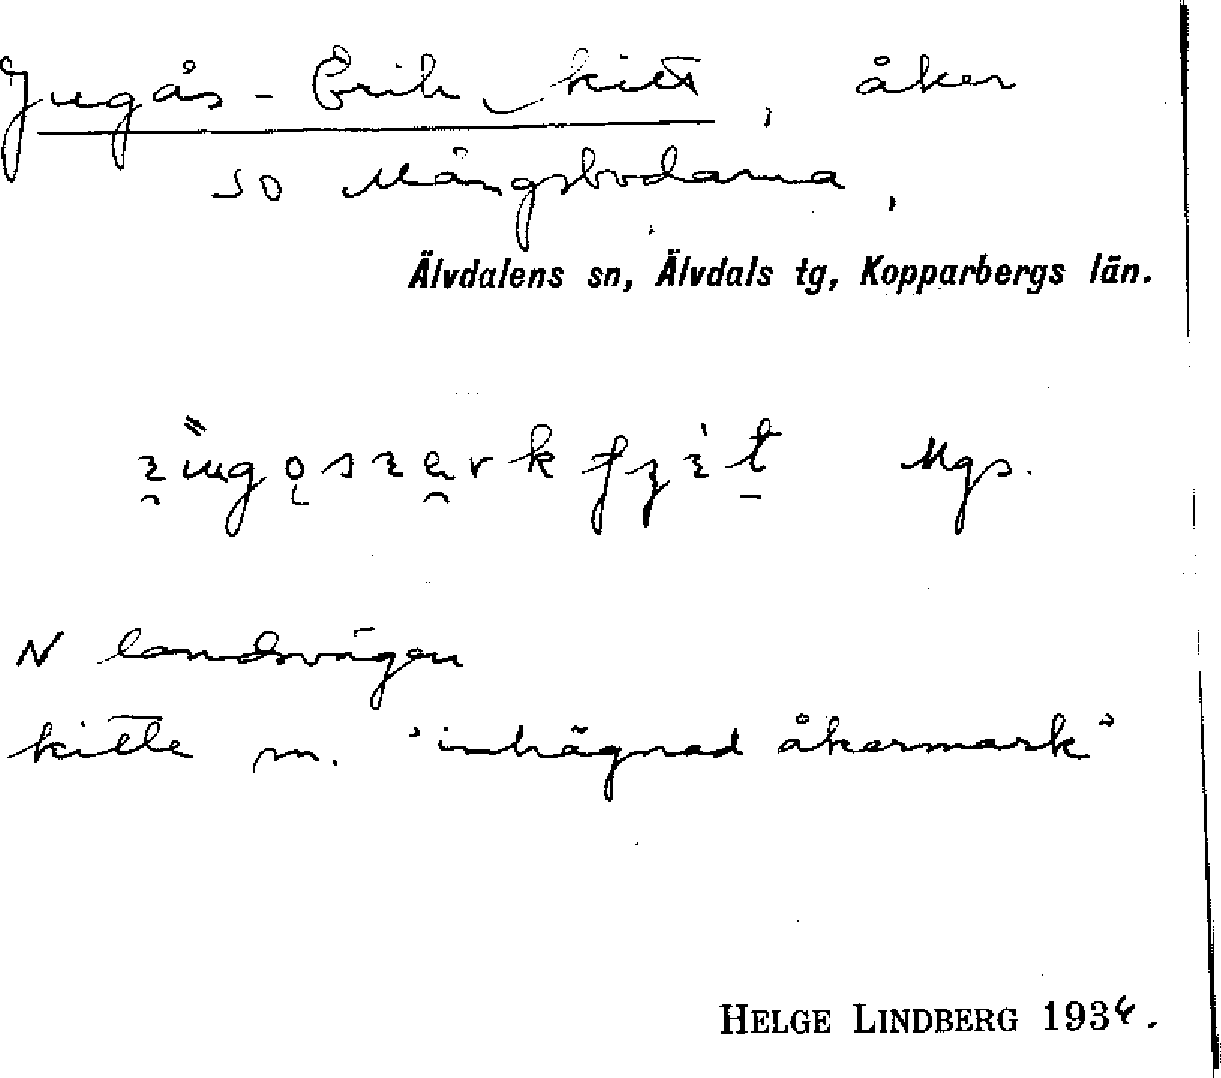 Jugås-Erik kitt, åker
so Mångsbodarna,
Älvdalens sn, Älvdals tg, Kopparbergs län.
Mgs.
N landsvägen
kitte m. 'inhägnad åkermark'
HELGE LINDBERG 1934.